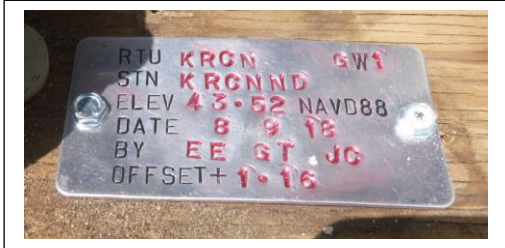 RTU KRCN GW1
STN KRCNND
ELEV 43•52 NAVD88
DATE 8 9 18
BY EE GT JC
OFFSET+ 1•16